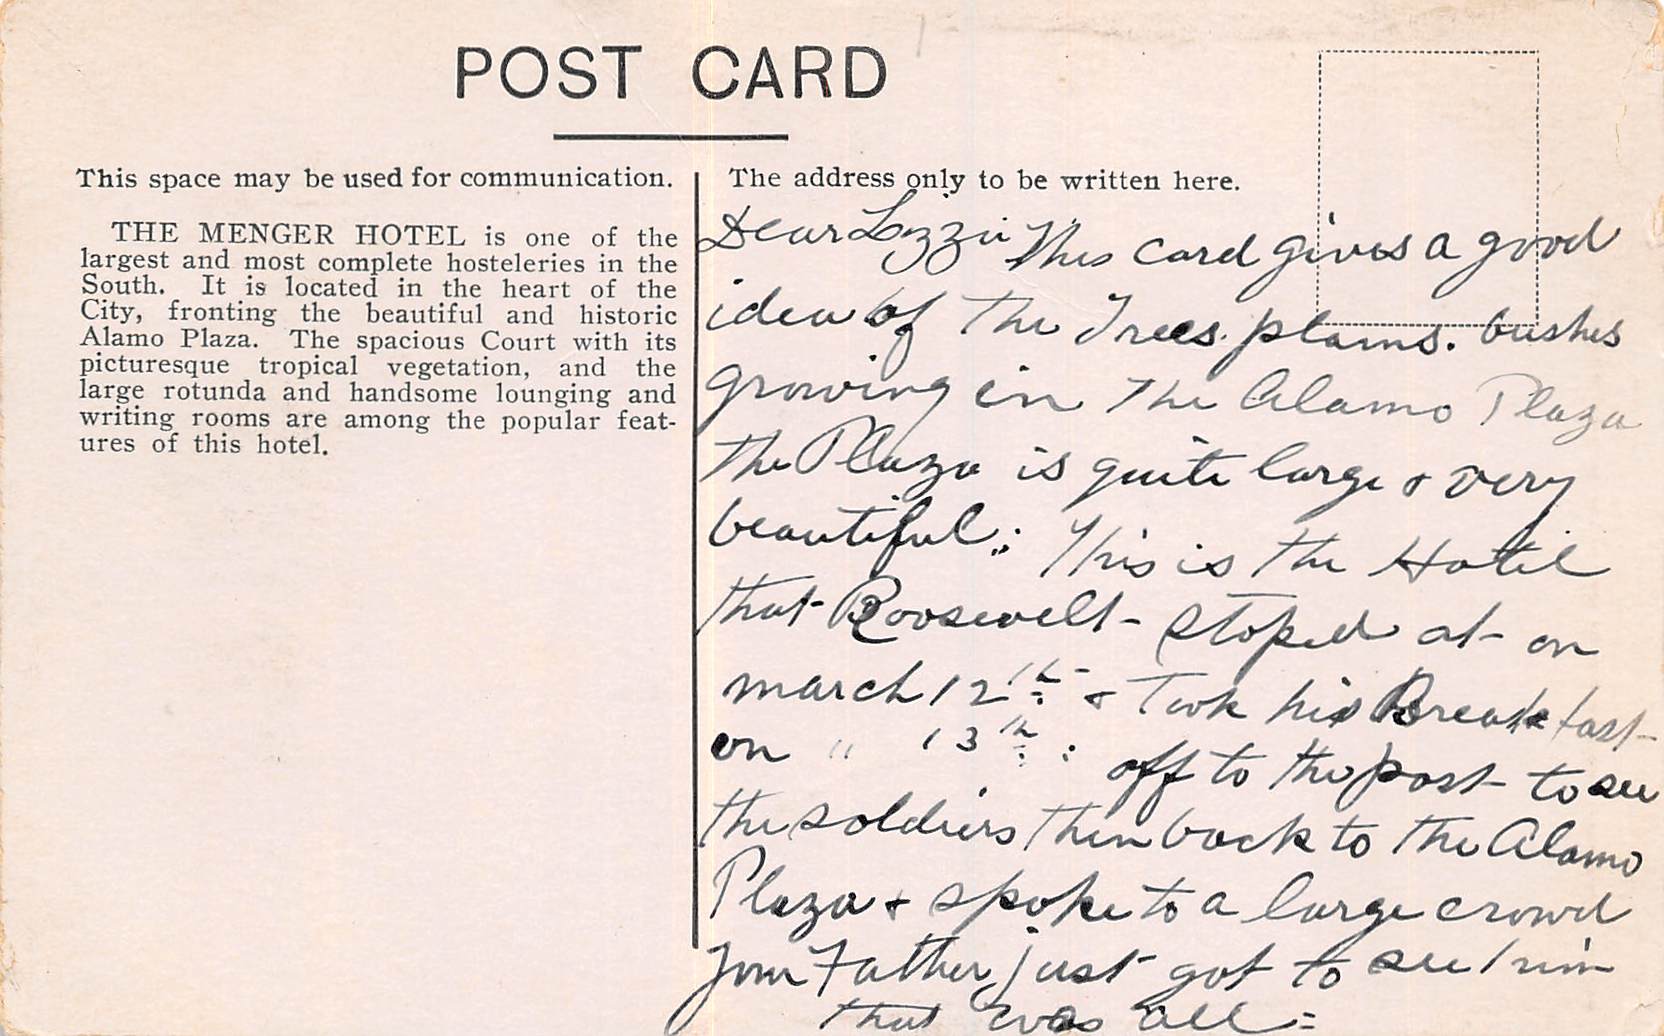 POST CARD
This space may be used for communication.
THE MENGER HOTEL is one of the
largest and most complete hosteleries in the
South. It is located in the heart of the
City, fronting the beautiful and historic
Alamo Plaza. The spacious Court with its
picturesque tropical vegetation, and the
large rotunda and handsome lounging and
writing rooms are among the popular feat-
ures of this hotel.
The address only to be written here.
Dear Lizzie This card gives a good
idea of the Trees. plams. bushes
growing in The Alamo Plaza
the Plaza is quite large & very
beautiful.: This is the Hotel
that Roosevelt stoped at on
march 12th & Took his Breakfast
on " 13th: off to the post to see
the soldiers then back to the Alamo
Plaza & spoke to a large crowd
your Father just got to see him
that was all =